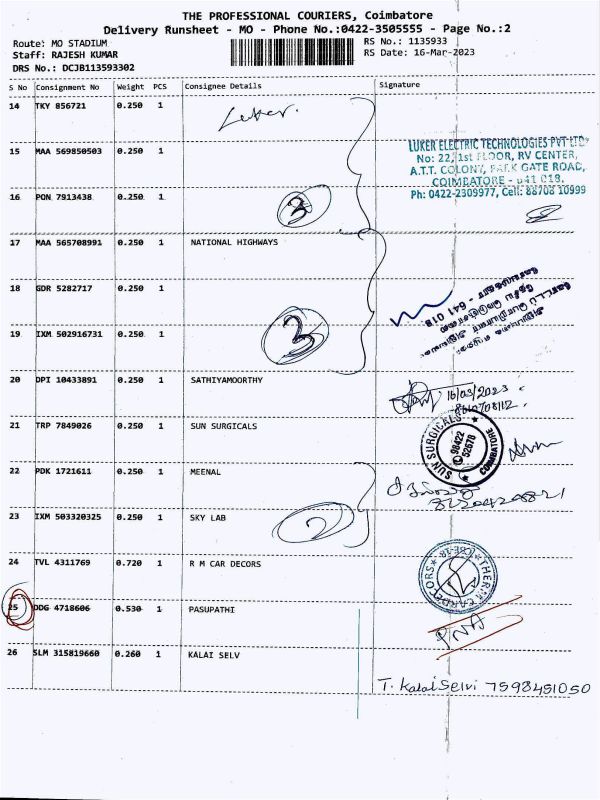 THE PROFESSIONAL COURIERS, Coimbatore
Delivery Runsheet - MO - Phone No.:0422-3505555 - Page No.:2
Route: MO STADIUM
Staff: RAJESH KUMAR
DRS No.: DCJB113593302
RS No.: 1135933
RS Date: 16-Mar-2023
S No Consignment No Weight PCS Consignee Details Signature
14 TKY 856721 0.250 1 Luker.
15 MAA 569850503 0.250 1
LUKER ELECTRIC TECHNOLOGIES PVT LTD.
No: 22, 1st FLOOR, RV CENTER,
A.T.T. COLONY, PARK GATE ROAD,
COIMBATORE - 641 018.
Ph: 0422-2309977, Cell: 88708 10999
16 PON 7913438 0.250 1
3
17 MAA 565708991 0.250 1 NATIONAL HIGHWAYS
18 GDR 5282717 0.250 1
- 641 018
19 IXM 502916731 0.250 1
3
20 DPI 10433891 0.250 1 SATHIYAMOORTHY
16/03/2023
21 TRP 7849026 0.250 1 SUN SURGICALS
SUN SURGICALS
98422
52678
COIMBATORE
22 PDK 1721611 0.250 1 MEENAL
23 IXM 503320325 0.250 1 SKY LAB
2
24 TVL 4311769 0.720 1 R M CAR DECORS
25 DDG 4718606 0.530 1 PASUPATHI
PNA
26 SLM 315819660 0.260 1 KALAI SELV
T. Kalai Selvi 7598451050